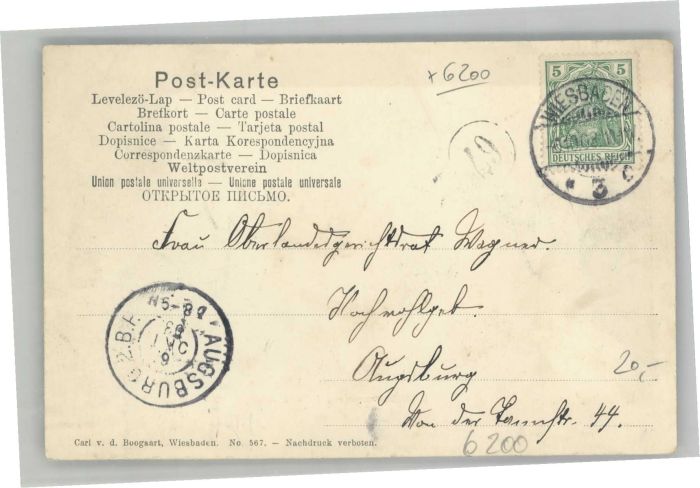 x 6200
5 5
DEUTSCHES REICH
WIESBADEN
* 3 c
Post-Karte
Levelezö-Lap — Post card — Briefkaart
Brefkort — Carte postale
Cartolina postale — Tarjeta postal
Dopisnice — Karta Korespondencyjna
Correspondenzkarte — Dopisnica
Weltpostverein
Union postale universelle — Unione postale universale
ОТКРЫТОЕ ПИСЬМО.
Frau Oberlandesgerichtsrat Wagner.
Hochwohlgeb.
Augsburg
20,-
Von der Tannstr. 44.
AUGSBURG 2.B.P.
6200
Carl v. d. Boogaart, Wiesbaden. No. 567. — Nachdruck verboten.